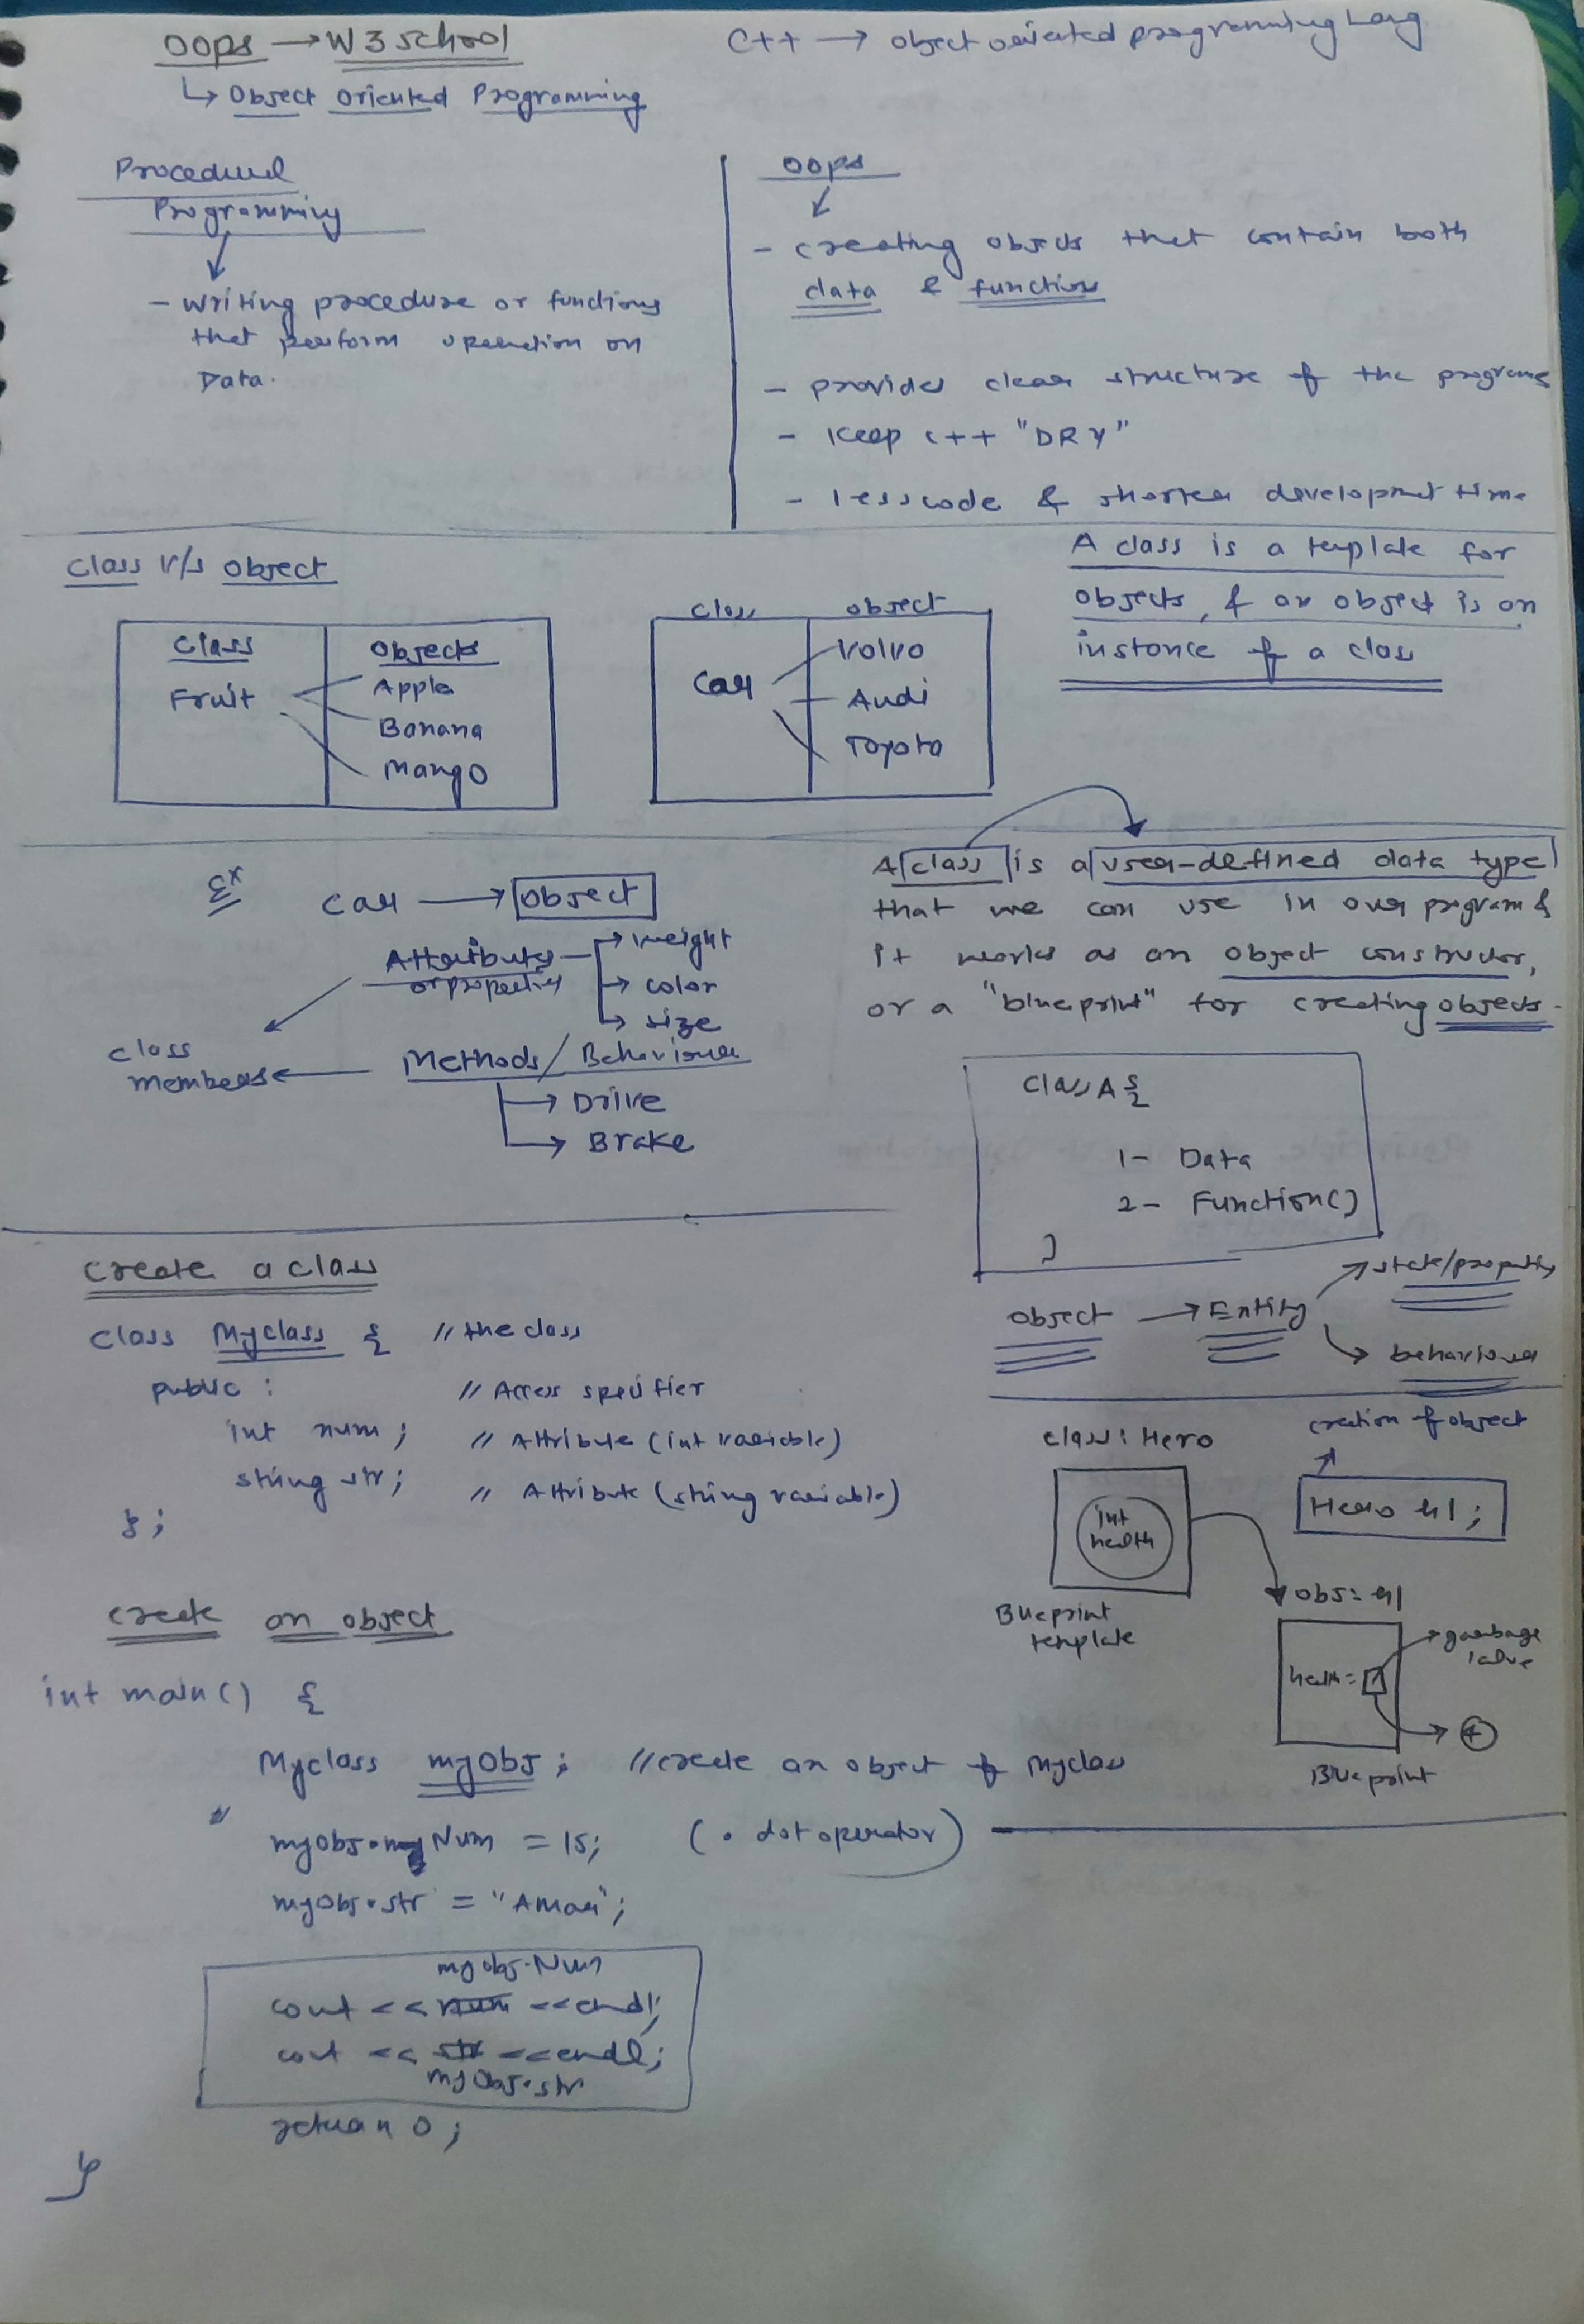 OOPS → W3School
C++ → Object oriented programming Lang
↳ Object Oriented Programming
Procedural
Programming
- Writing procedure or functions
that perform operation on
Data.
OOPS
- creating objects that contain both
data & functions
- provides clear structure of the programs
- Keep C++ "DRY"
- less code & shorter development time
Class V/s Object
Class
Objects
Fruit
Apple
Banana
Mango
Class
object
Car
Volvo
Audi
Toyota
A class is a template for
objects, & an object is an
instance of a class
Ex
Car → Object
Attributes
or properties
→ weight
→ color
→ size
class
members
Methods / Behaviour
→ Drive
→ Brake
A class is a user-defined data type
that we can use in our program &
it works as an object constructor,
or a "blueprint" for creating objects.
Class A {
1- Data
2- Function()
}
Object → Entity
state/property
behaviour
Create a class
class Myclass { // the class
public : // Access specifier
int num ; // Attribute (int variable)
string str; // Attribute (string variable)
};
class: Hero
int
health
Blueprint
template
creation of object
Hero h1 ;
obj: h1
health =
garbage
value
Blueprint
create an object
int main() {
Myclass myObj ; // create an object of Myclass
myObj.myNum = 15; (. dot operator)
myObj.str = "Amar";
myobj.Num
cout << num << endl;
cout << str << endl;
myObj.str
return 0 ;
}